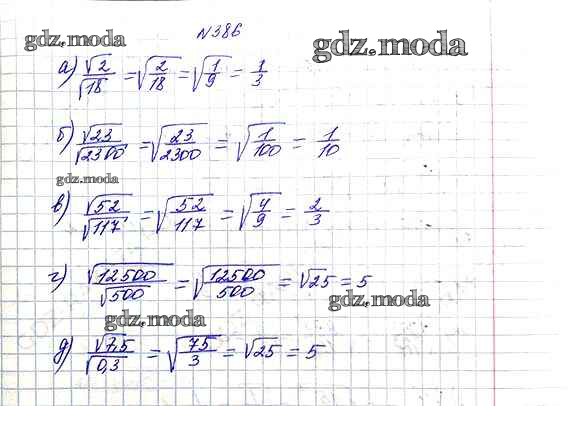 N386
gdz.moda
gdz.moda
а) √2/√18 = √(2/18) = √(1/9) = 1/3
б) √23/√2300 = √(23/2300) = √(1/100) = 1/10
gdz.moda
в) √52/√117 = √(52/117) = √(4/9) = 2/3
г) √12500/√500 = √(12500/500) = √25 = 5
gdz.moda
gdz.moda
д) √7,5/√0,3 = √(75/3) = √25 = 5